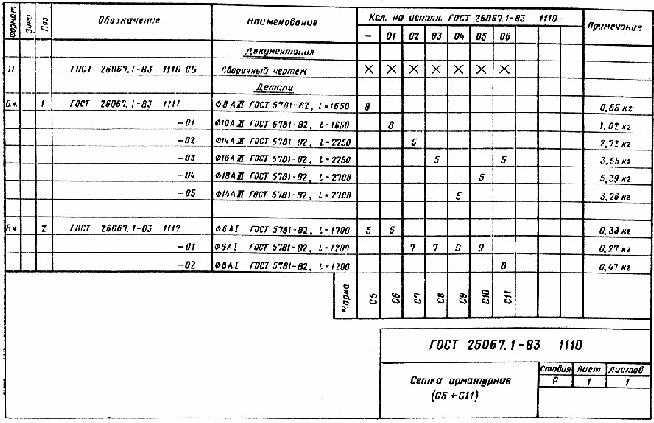 Формат Зона Поз. Обозначение Наименование Кол. на исполн. ГОСТ 25067.1-83 1110 Примечание
– 01 02 03 04 05 06
Документация
ГОСТ 25067.1-83 1110 СБ Сборочный чертеж X X X X X X X
Детали
Б.ч. 1 ГОСТ 25067.1-83 1111 ГОСТ 5781-82, L=1650 8 0,65 кг
-01 Ф10АIII ГОСТ 5781-82, L=1650 8 1,02 кг
-02 Ф14АIII ГОСТ 5781-82, L=2250 2,72 кг
-03 Ф16АIII ГОСТ 5781-82, L=2250 5 5 3,55 кг
-04 Ф18АIII ГОСТ 5781-82, L=2700 5 5,39 кг
-05 Ф14АIII ГОСТ 5781-82, L=2700 5 3,26 кг
Б.ч. 2 ГОСТ 25067.1-83 1112 Ф6АI ГОСТ 5781-82, L=1700 0,38 кг
-01 Ф6АI ГОСТ 5781-82, L=1200 7 7 0,27 кг
-02 Ф8АI ГОСТ 5781-82, L=1200 8 0,47 кг
Марка С5 С6 С7 С8 С9 С10 С11
ГОСТ 25067.1-83 1110
Сетки арматурные
(С5÷С11)
Стадия Лист Листов
Р 1 1